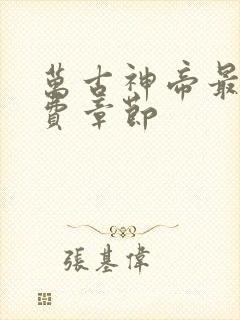 萬古神帝最
費章節
張基偉